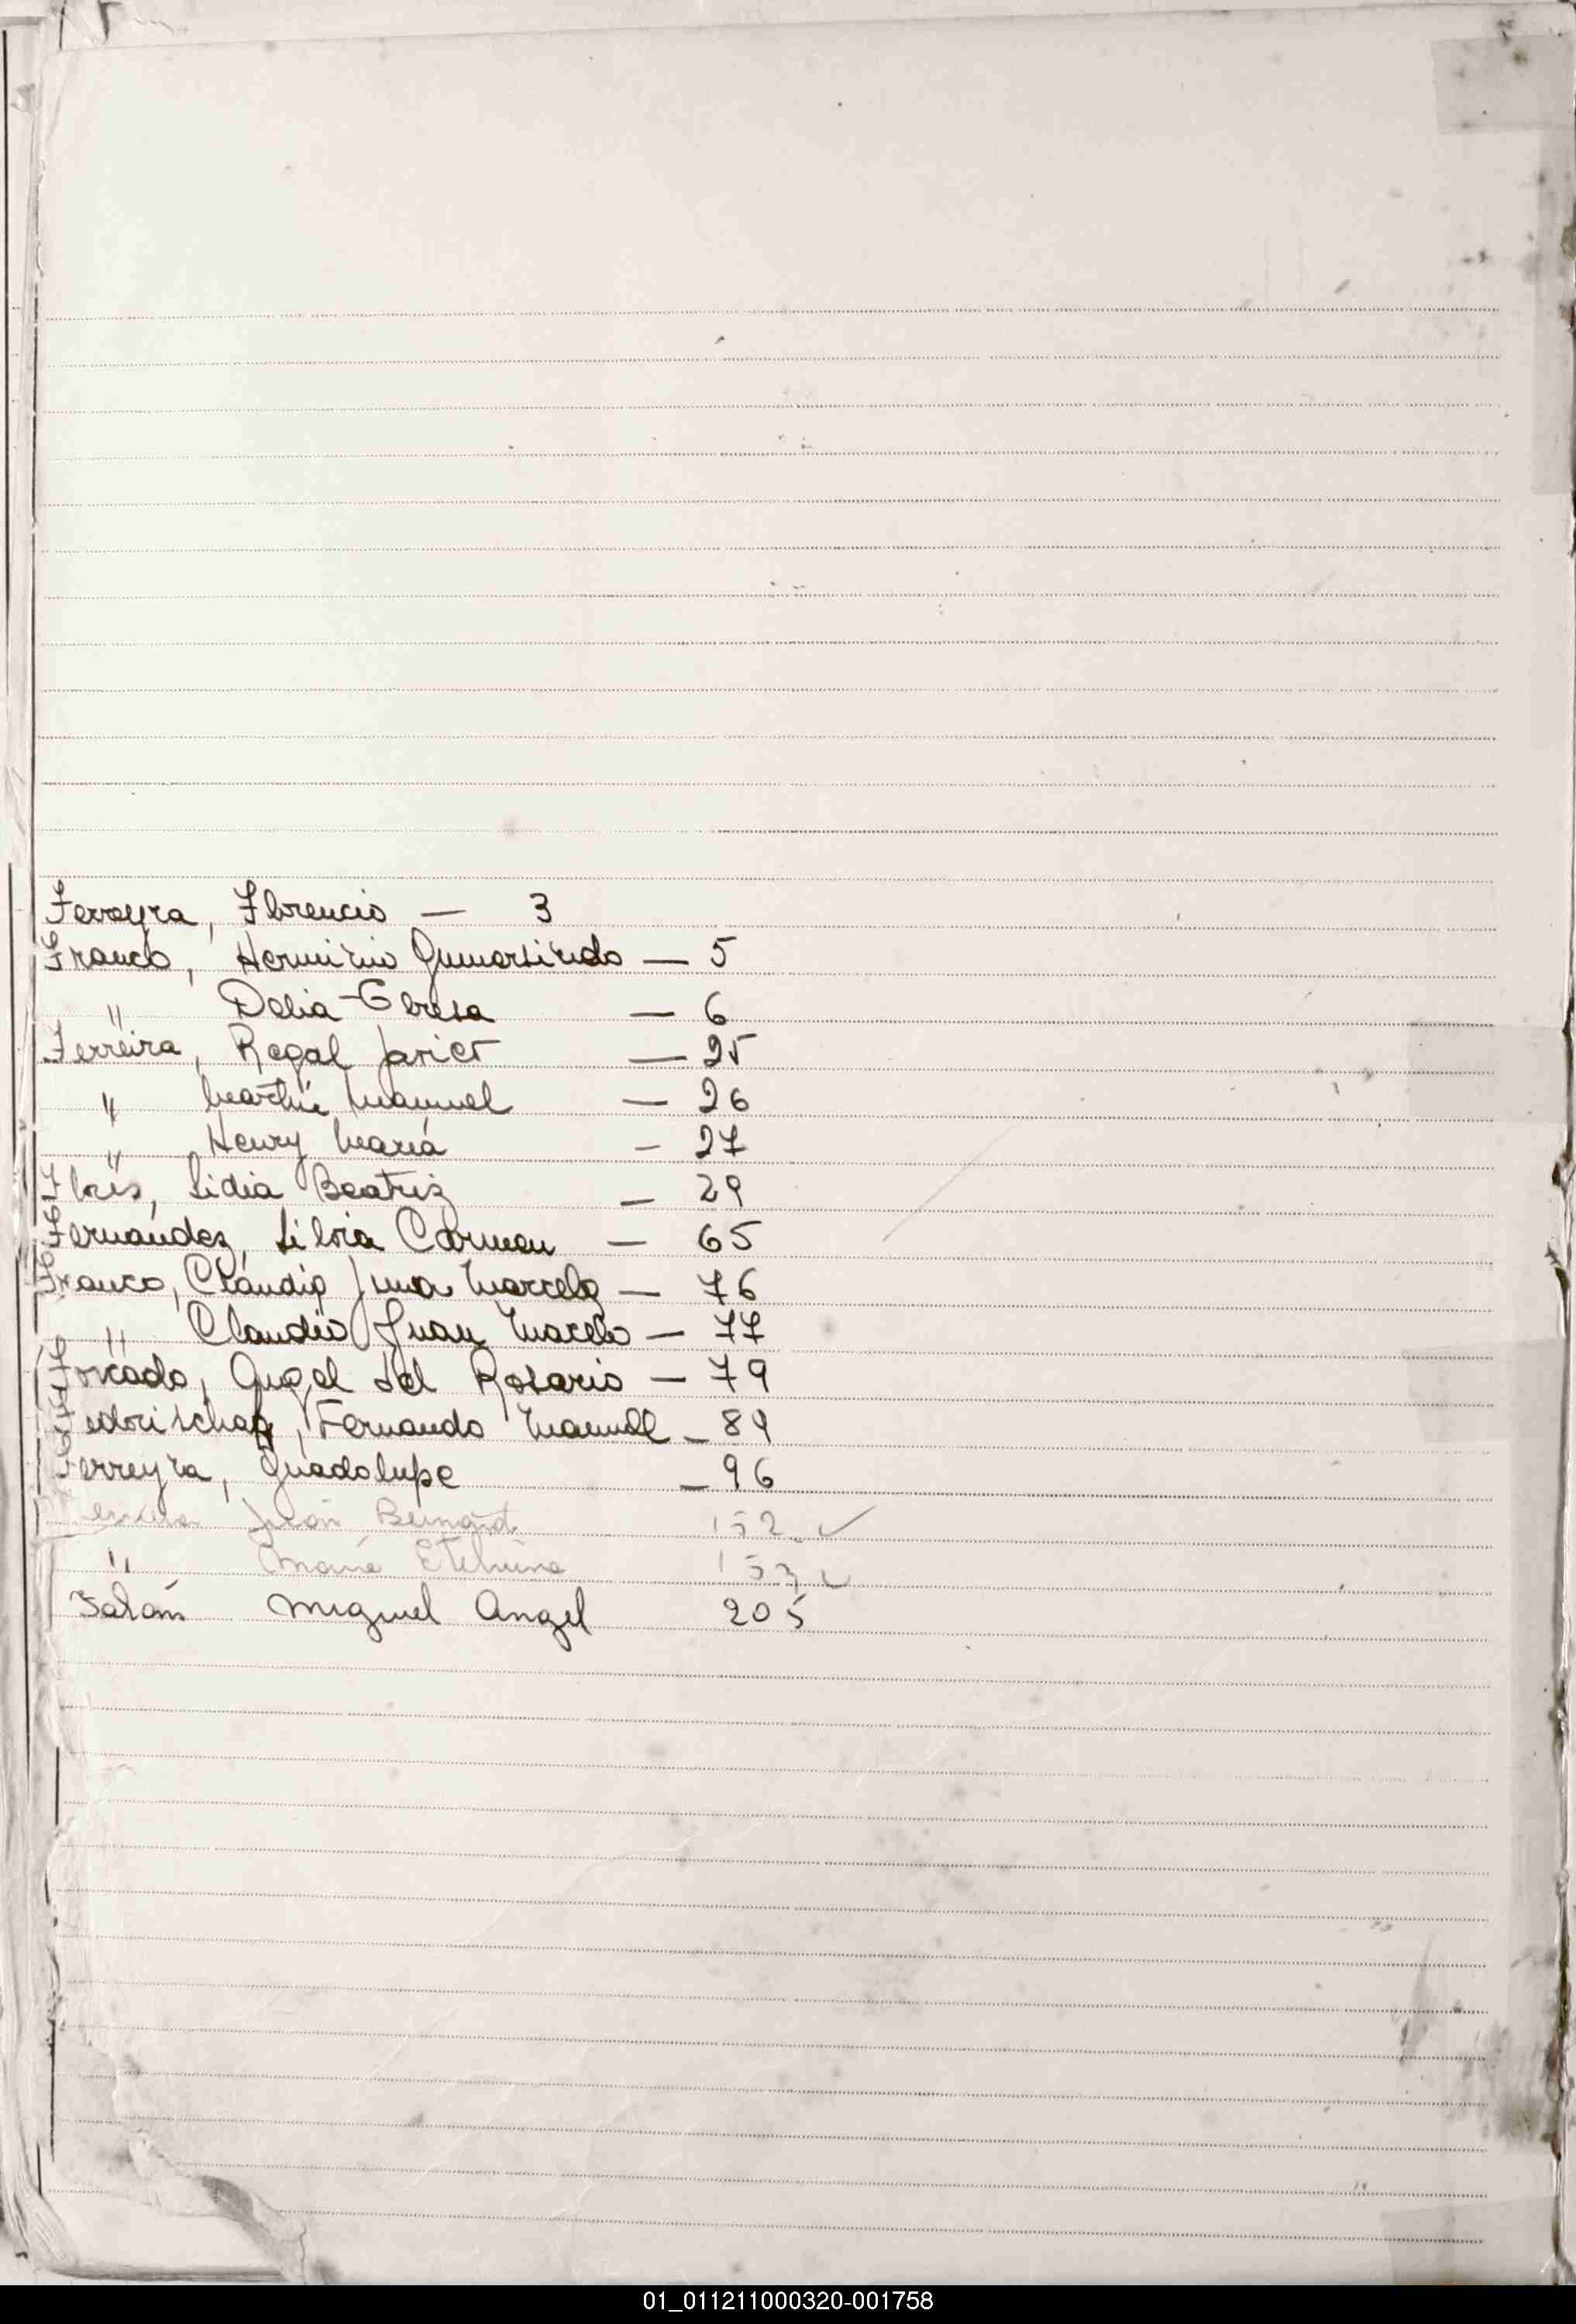 Ferreyra, Florencio — 3
Franco, Herminio Gumersindo — 5
" Delia Teresa — 6
Ferreira, Regal Javier — 25
" Martín Manuel — 26
" Henry María — 27
Flores, Lidia Beatriz — 29
Fernández, Silvia Carmen — 65
Franco, Claudia Juana Marcela — 76
" Claudio Juan Marcelo — 77
Forcado, Angel del Rosario — 79
Fernando Manuel — 89
Ferreyra, Guadalupe — 96
Juan 152 ✓
" María 153 ✓
Miguel Angel 205
01_011211000320-001758